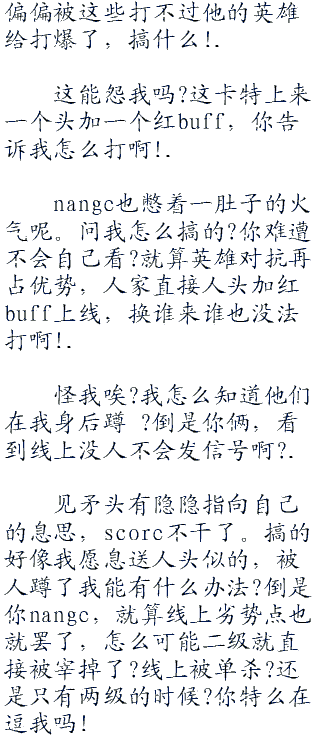 偏偏被这些打不过他的英雄
给打爆了，搞什么!.
这能怨我吗?这卡特上来
一个头加一个红buff，你告
诉我怎么打啊!.
nangc也憋着一肚子的火
气呢。问我怎么搞的?你难遭
不会自己看?就算英雄对抗再
占优势，人家直接人头加红
buff上线，换谁来谁也没法
打啊!.
怪我唉?我怎么知道他们
在我身后蹲 ?倒是你俩，看
到线上没人不会发信号啊?.
见矛头有隐隐指向自己
的息思，scorc不干了。搞的
好像我愿息送人头似的，被
人蹲了我能有什么办法?倒是
你nangc，就算线上劣势点也
就罢了，怎么可能二级就直
接被宰掉了?线上被单杀?还
是只有两级的时候?你特么在
逗我吗!